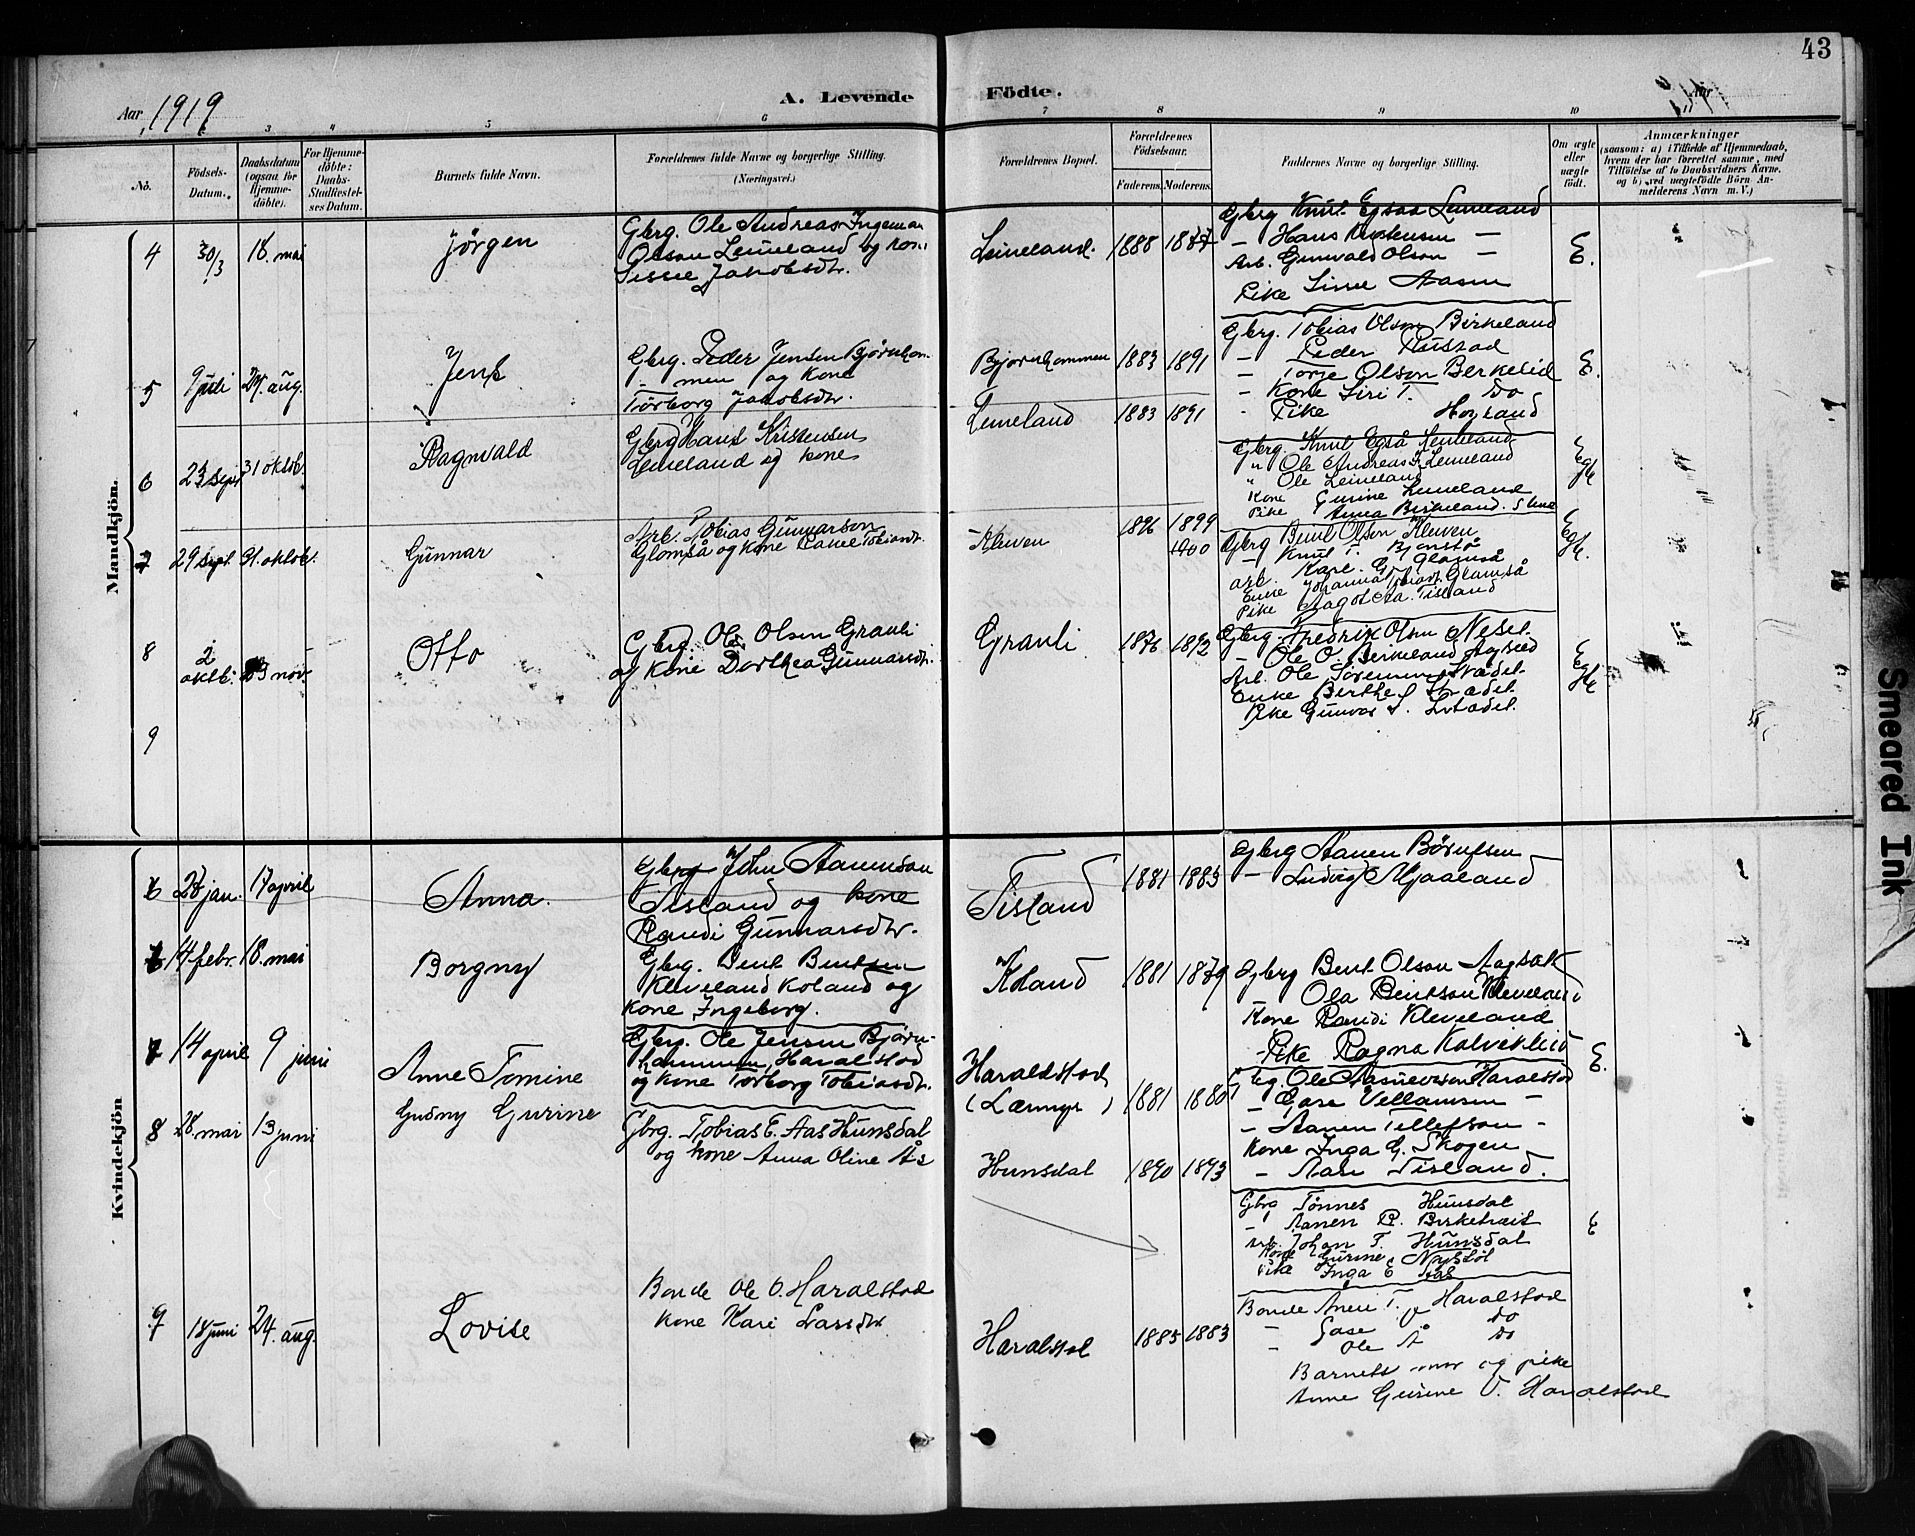 43
Aar 1919
A. Levende Födte.
Aar
3 4 5 6 7 8 9 10
No.
Födsels-Datum.
Daabsdatum (ogsaa for Hjemme-döbte).
For Hjemme-döbte: Daabs-Stadfæstel-ses Datum.
Barnets fulde Navn.
Forældrenes fulde Navne og borgerlige Stilling.
(Næringsvei.)
Forældrenes Bopæl.
Forældrenes Födselsaar.
Faderens. Moderens.
Faddernes Navne og borgerlige Stilling.
Om ægte eller uægte födt.
Anmærkninger
(saasom: a) i Tilfælde af Hjemmedaab,
hvem der har forrettet samme, med
Tilföielse af to Daabsvidners Navne,
og b) ved uægtefödte Börn An-
melderens Navn m. V.)
Mandkjön.
4 30/3 18. mai Jørgen
Gbrg. Ole Andreas Ingeman
Olson Leineland og kone
Sissel Jakobsdtr.
Leineland. 1888 1887
Gbrg Knut Egsaa Leineland
– Hans Kristensen –
Arb. Gunvald Olson –
Pike Sissel Aasen
E.
5 9 juli 24. aug. Jens
Gbrg. Peder Jensen Bjørnham-
men og kone
Torborg Jakobsdtr.
Bjørnhommen 1883 1891
Gbrg. Tobias Olson Birkeland
– Peder Rustad
– Torje Olson Berkelid
– Kone Siri T. Do
– Pike Højland
E.
6 23 sept 31 oktob. Ragnvald
Gbrg Hans Kristensen
Leineland og kone
Leineland 1883 1891
Gbrg. Knut Egså Leineland
" Ole Andreas I. Leineland
" Ole Leineland
Kone Gurine Leineland
Pike Anna Birkeland.
Egte
7 29 sept. 31. oktob. Gunnar
Arb. Tobias Gunnarson
Glomså og kone Rakel Tobiasdtr.
Kleven 1896 1899
1900
Gbrg Bent Olson Kleven
– Knut T. Bjonstø
arb. Karl G. Glomså
Enke Johanna Tobiasdt. Glomså
Pike Aagot Aa. Tisland
Egte.
8 2 oktb. 23 nov. Otto
Gbrg. Ole Olsen Gravli
og Kone Dorthea Gunnarsdtr.
Gravli 1876 1892
Gbrg. Fredrik Olsen Nesel.
– Ole O. Birkeland Aagsed
Arb. Ole Sörensen
Enke Berthe S.
Pike Gunvor S.
Egte
9
Kvindekjön
28 jan. 17 april Anna.
Gbrg John Aanenson
Tisland og kone
Randi Gunnarsdtr.
Tisland 1881 1883
Gbrg Aanen Børufsen
– Ludvig Mjaaland
6 14 febr. 18. mai Borgny
Gbrg. Bent Bentsen
Kleveland Koland og
Kone Ingeborg.
Koland 1881 1879
Gbrg Bent Olson
– Ola Bentson Kleveland
Kone Randi Kleveland
– Pike Ragna Kalvehlid
7 14 april 9 juni Anne Tomine
Gbrg. Ole Jensen Bjørn-
hammen, Haralstad
og kone Torborg Tobiasdtr.
Haraldstad 1881 1880
Gbrg. Ole Haralstad
– Gase Vellamsen –
– Aanen Tellefson –
Kone Inga G. Skogen
– Aase Tisland.
E.
8 28. mai 13 juni Gudny Gurine
Gbrg. Tobias E. Aas Hunsdal
og kone Anna Oline Ås
Hunsdal 1890 1893
Gbrg Tønnes Hunsdal
– Aanen P.
Arb. Johan T. Hunsdal
Kone Gurine Nystøl
Pike Inga E Aas
E
9 18 juni 24. aug. Lovise
Bonde Ole O. Haralstad
Kone Kari Larsdtr
Haralstad 1885 1883
Bonde T. Haralstad
– Gase Do
– Ole Å Do
Barnets mor og pike
Anne Gurine O. Haralstad
Smeared Ink